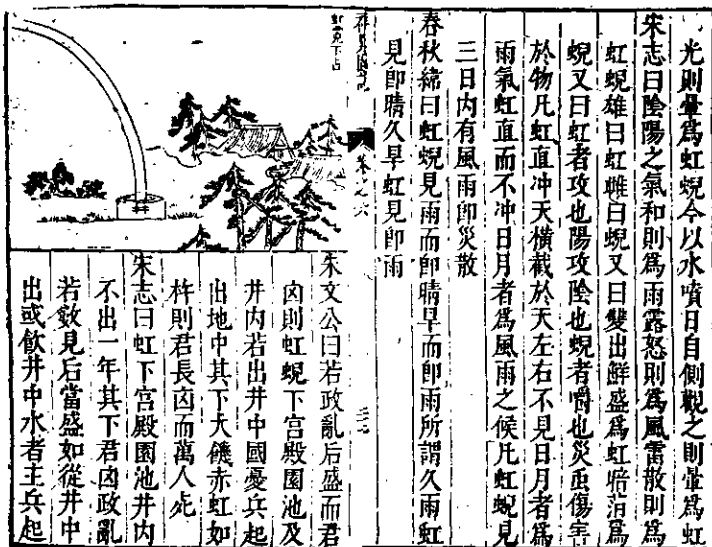 光則暈爲虹蜺今以水噴日自側觀之則暈爲虹
宋志曰陰陽之氣和則爲雨露怒則爲風雷散則爲
虹蜺雄曰虹雌曰蜺又曰雙出鮮盛爲虹暗爲
蜺又曰虹者攻也陽攻陰也蜺者嚙也災䖝傷害
於物凡虹直冲天橫截於天左右不見日月者爲
雨氣虹直而不冲日月者爲風雨之候凡虹蜺見
三日内有風雨卽災散
春秋緯曰虹蜺見雨而卽晴旱而卽雨所謂久雨虹
見卽晴久旱虹見卽雨
卷之六
虹蜺下占
朱文公曰若政亂后盛而君
凶則虹蜺下宫殿園池及
井内若出井中國憂兵起
出地中其下大饑赤虹如
杵則君長凶而萬人死
宋志曰虹下宫殿園池井内
不出一年其下君凶政亂
若數見后當盛如從井中
出或飲井中水者主兵起